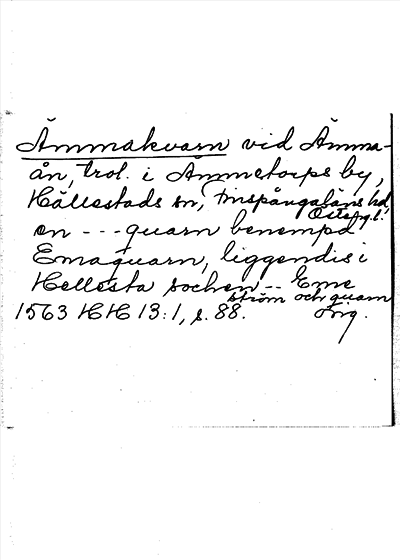 Ämmakvarn vid Ämma-
ån, trol. i Ämmetorps by,
Hällestads sn, Finspångaläns hd,
Östergl.
en --- quarn benempd
Emaquarn, liggendis i
Hellesta sochen -- Eme
ström och quarn
1563 HH 13:1, s. 88. Orig.